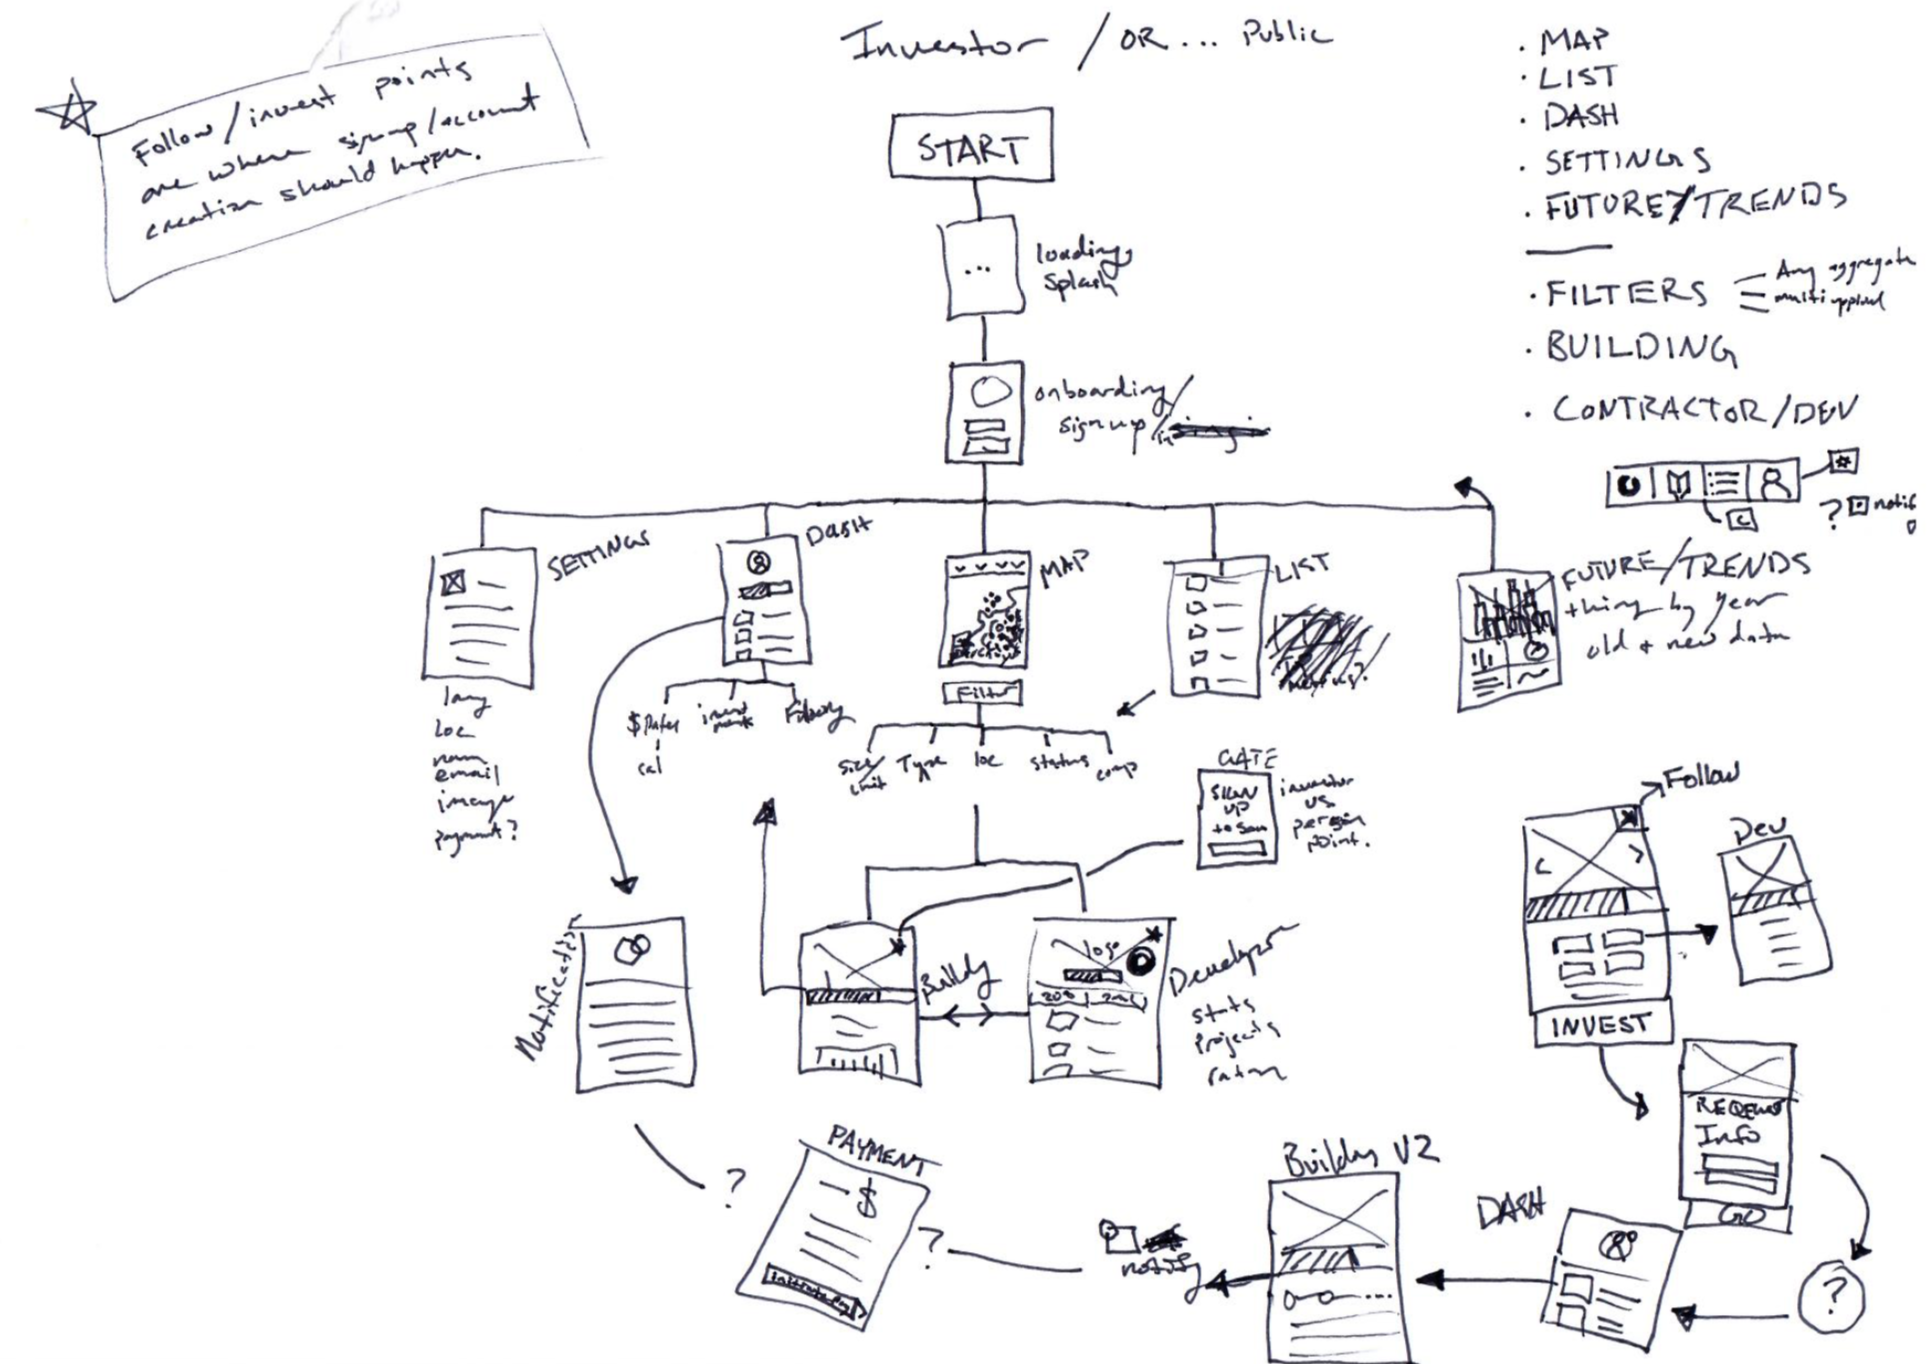 Investor / OR ... Public
Follow / invest points
are where signup / account
creation should happen.
START
...
loading
splash
onboarding /
signup /
SETTINGS
lang
loc
email
image
payment?
DASH
cal
MAP
Filter
size/
unit
Type
loc
status
comp
LIST
FUTURE/TRENDS
thing by year
old + new data
· MAP
· LIST
· DASH
· SETTINGS
· FUTURE/TRENDS
· FILTERS
Any aggregate
multi
· BUILDING
· CONTRACTOR/DEV
?
notif
GATE
SIGN
UP
investor
vs
person
point.
Follow
Dev
INVEST
Info
GO
?
DASH
Building V2
notify
?
PAYMENT
$
?
Building
logo
Developer
stats
projects